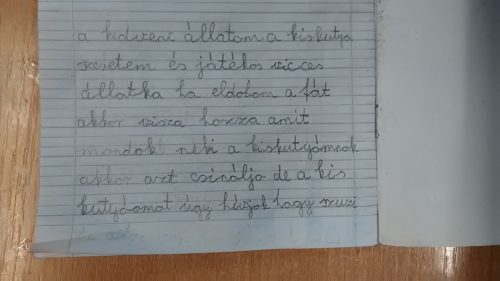 a kedvenc állatom a kiskutya
szeretem és játékos vicces
állatka ha eldobom a fát
akkor visza hozza amit
mondok neki a kiskutyámnak
akkor azt csinálja de a kis
kutyámat úgy hívják hogy zsuzsi